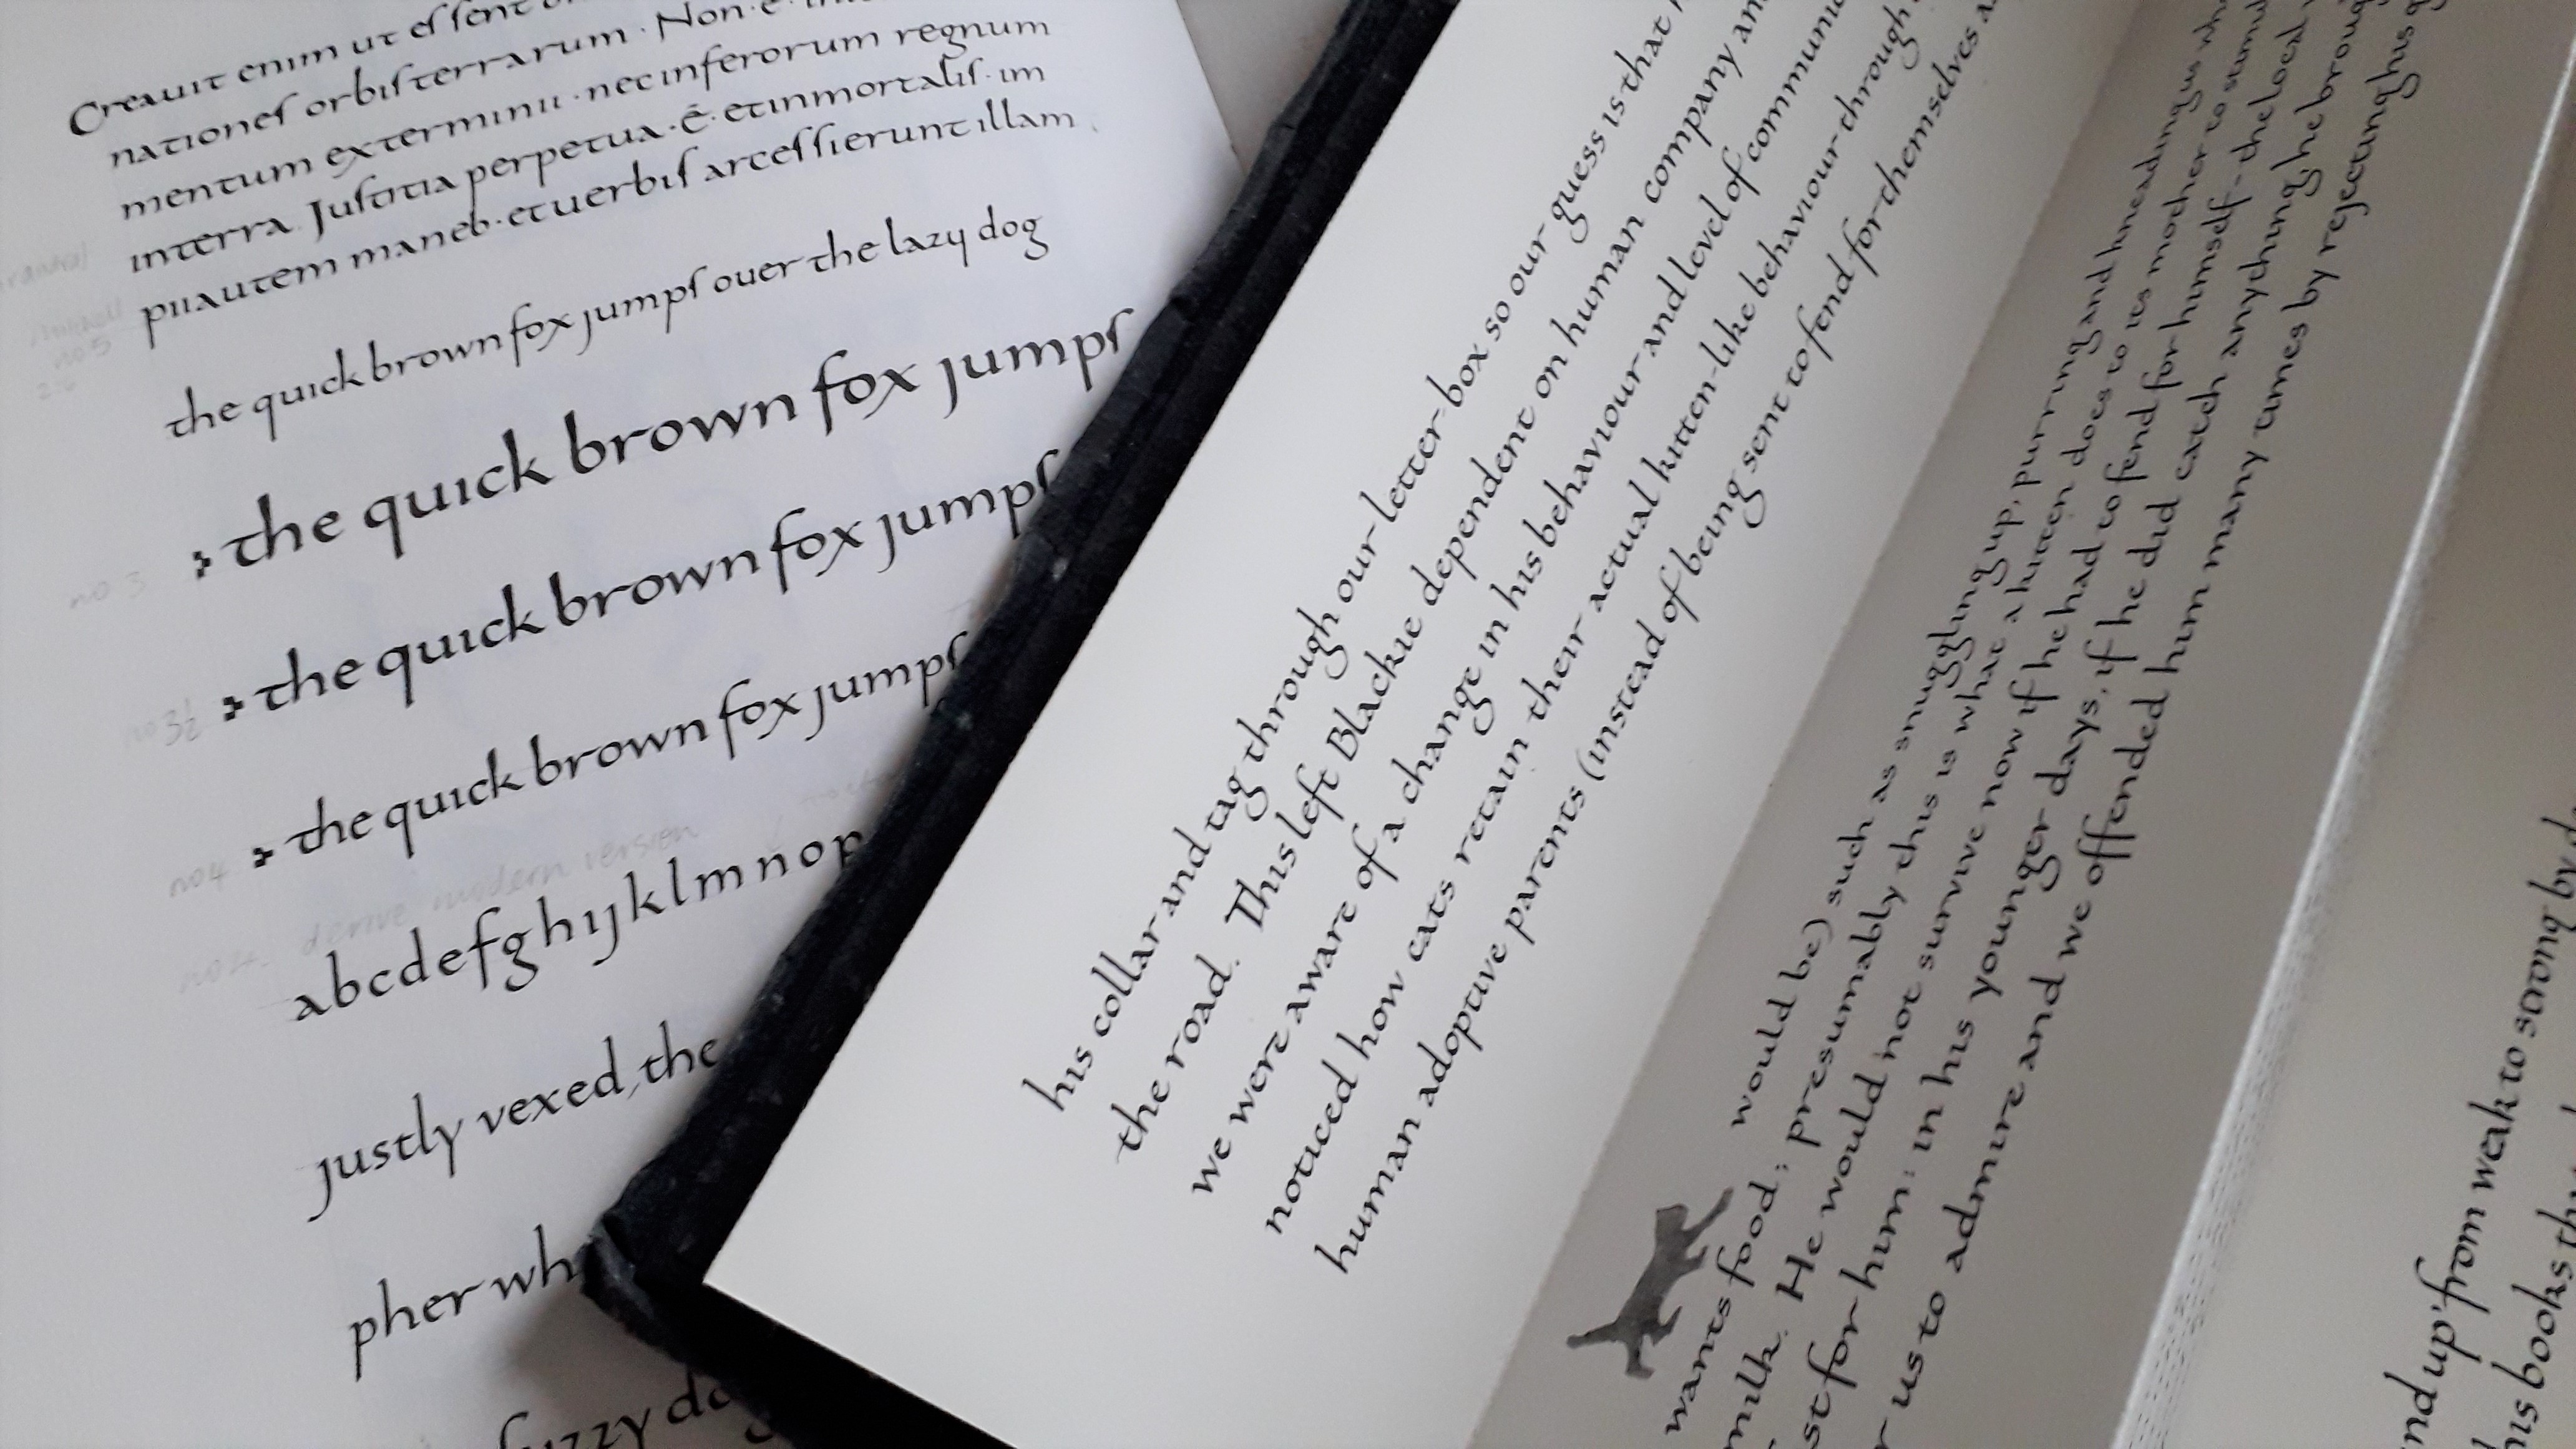 Creauit enim ut eſſent
nationeſ orbiſterrarum · Non · ē ·
mentum exterminii · nec inferorum regnum
interra. Juſtitia perpetua · Ē · etinmortaliſ · im
piiautem maneb · etuerbiſ arceſſierunt illam
the quick brown fox jumpſ ouer the lazy dog
no 5
no 3
the quick brown fox jumpſ
no 3½
the quick brown fox jumpſ
no 4
the quick brown fox jumpſ
derive modern version
abcdefghijklmnop
justly vexed, the
pher wh
fuzzy do
his collar and tag through our letter-box so our guess is that
the road. This left Blackie dependent on human company an
we were aware of a change in his behaviour and level of communic
noticed how cats retain their actual kitten-like behaviour through
human adoptive parents (instead of being sent to fend for themselves a
would be) such as snuggling up, purring and kneading us
wants food; presumably this is what a kitten does to its mother to
milk. He would not survive now if he had to fend for himself - the local
st for him: in his younger days, if he did catch anything he
r us to admire and we offended him many times by rejecting his
nd up' from weak to strong by
his books